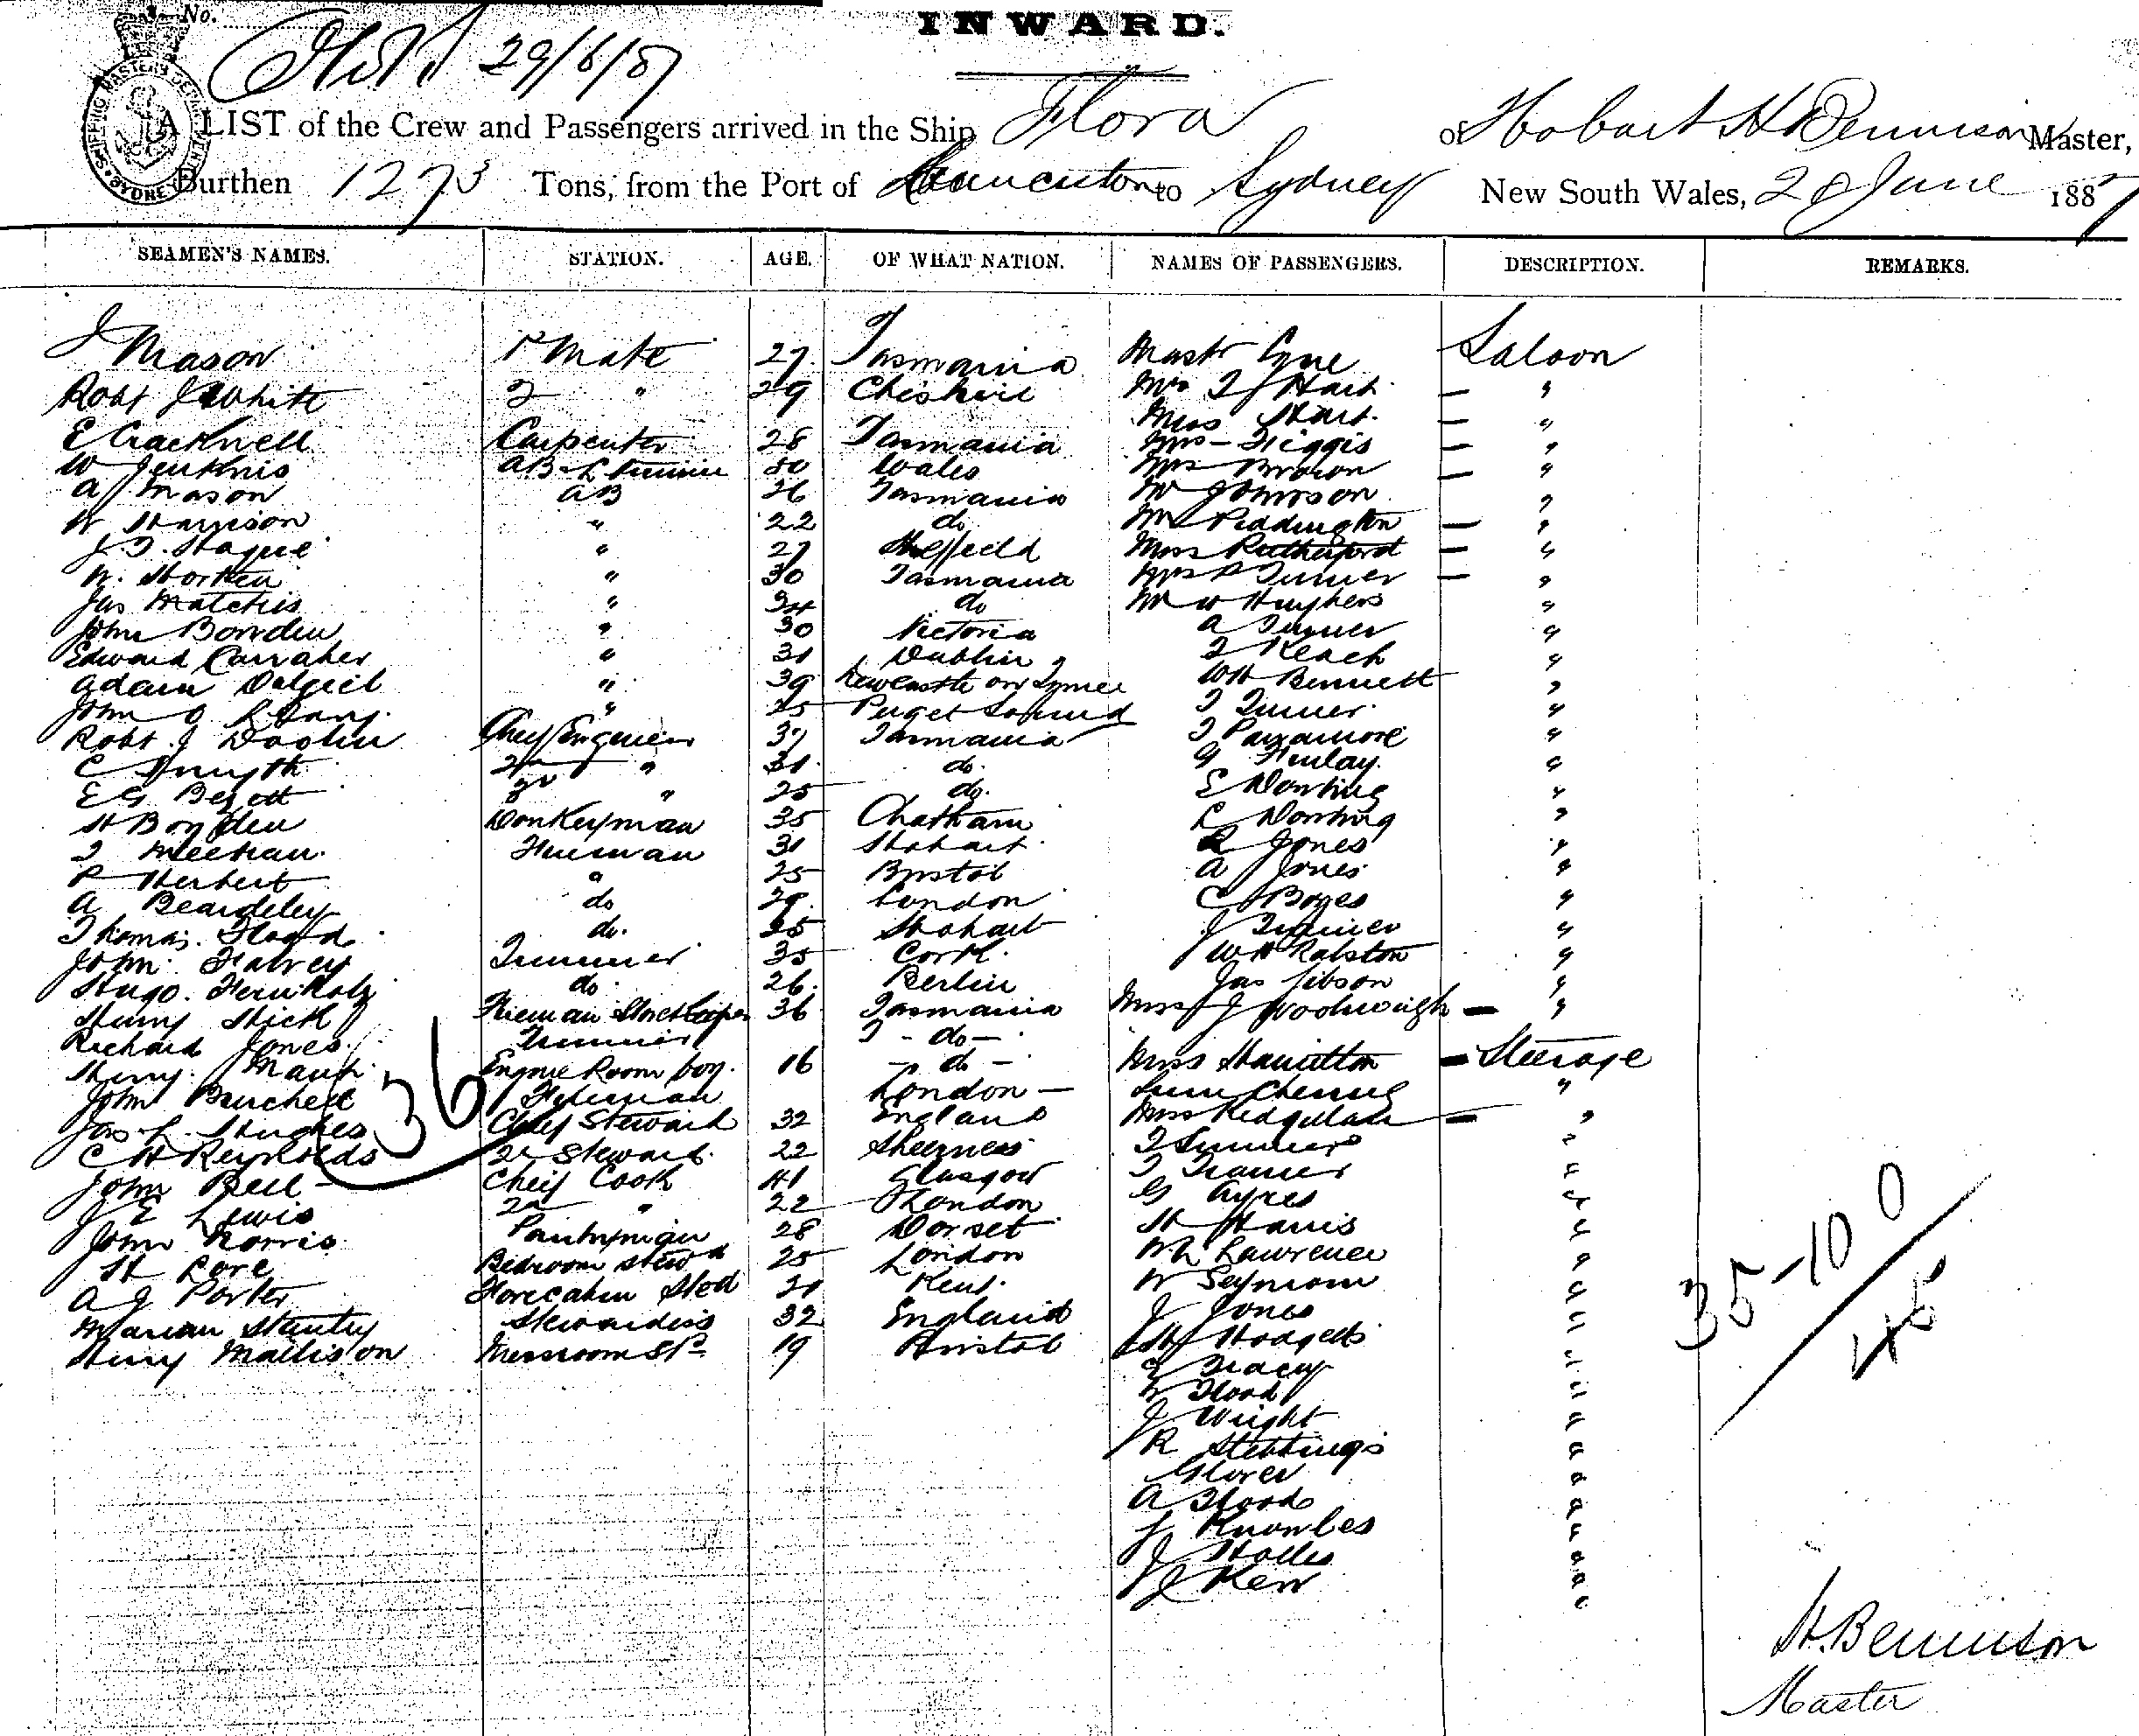 No.
INWARD.
29/6/87
A LIST of the Crew and Passengers arrived in the Ship Flora of Hobart H Bennison Master,
Burthen 1273 Tons, from the Port of Launceston to Sydney New South Wales, 28 June 1887
SEAMEN'S NAMES. STATION. AGE. OF WHAT NATION. NAMES OF PASSENGERS. DESCRIPTION. REMARKS.
J Mason 1st Mate 27 Tasmania Mastr Saloon
Robt J White 2 " 29 Cheshire Mrs T J Hart - "
Miss Hart - "
E Cracknell Carpenter 28 Tasmania Mrs - Figgis - "
W Jenkins AB 30 Wales Mrs Brown - "
A J Mason AB 26 Tasmania Mr Johnson "
W Harrison " 22 do Mrs Piddington - "
J. T. Hague " 27 Sheffield Miss Rutherford - "
W. Horten " 30 Tasmania Mrs Turner - "
Jas " 34 do Mr W Hughes "
John Bowden " 30 Victoria A Turner "
Edward Carraher " 31 Dublin T Keach "
Adam Dalgeil " 39 Newcastle on Tyne WH Bennett "
John O " 25 Puget Sound T Turner "
Robt J Chief Engineer 37 Tasmania T Parramore "
C Smyth 2nd " 31 do. G Finlay "
E G 3rd " 25 do. E Dowling "
H Boyden Donkeyman 35 Chatham L Dowling "
T Meehan Fireman 31 Hobart Jones "
P Herbert " 25 Bristol A Jones "
A Beardsley do 29 London C Boyes "
Thomas Flood do. 25 Hobart J Turner "
John Falvey Trimmer 35 Cork WH Ralston "
Hugo do 26 Berlin Jas Gibson "
Henry Hick Fireman Storekeeper 36 Tasmania Miss J - "
Richard Jones Trimmer - do -
Henry Engine Room boy 16 - do - Miss Hamilton - Steerage
John Burchell Fireman London - "
Jas. L. Hughes Chief Steward 32 England Miss - "
C H Reynolds 2nd Steward 22 Sheerness T "
John Bell Chief Cook 41 Glasgow T "
J E Lewis 2nd " 22 London G Ayres "
John Norris Pantryman 28 Dorset H Harris "
H Lore Bedroom Stewd 25 London Lawrence "
A J Porter Forecabin Stwd 21 Kent W Seymour "
Marian Stewardess 32 England J Jones "
Henry Mallison Messroom St 19 Bristol H Hodgetts "
Tracey "
Flood "
J Wright "
R Stebbings "
Glover "
A Flood "
J Knowles "
J "
J Kerr "
36
35-10 0
H. Bennison
Master